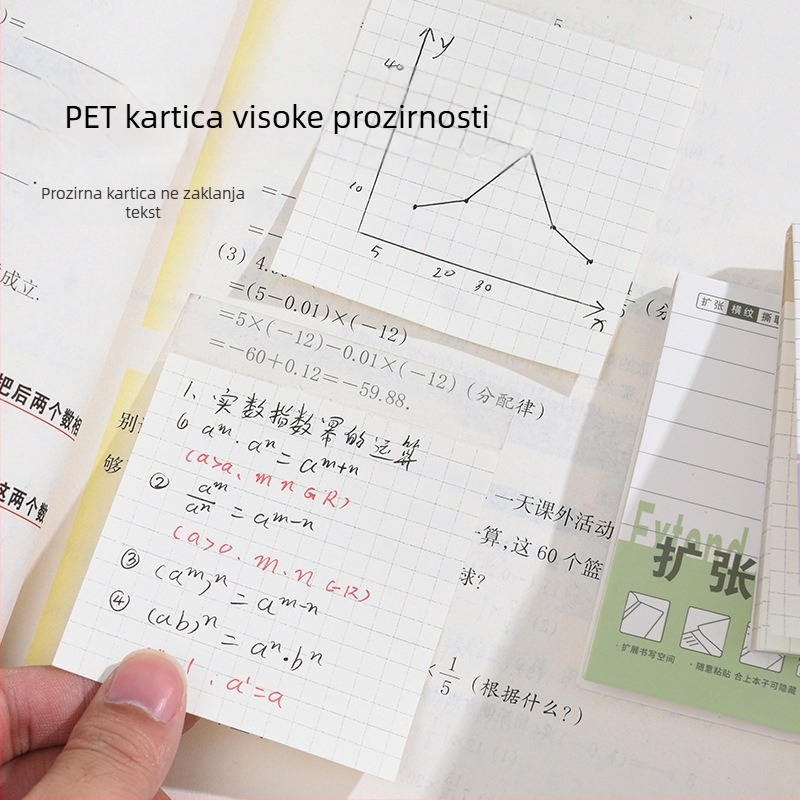 PET kartica visoke prozirnosti
Prozirna kartica ne zaklanja
tekst
y
40
10
5
20
30
x
成立.
把后两个数相
这两个数
(3) 4.
=(5−0.01)×(−12)
=5×(−12)−0.01×(−12)(分配律)
=−60+0.12=−59.88.
别
够
1、实数指数幂的运算
① aᵐ·aⁿ=aᵐ⁺ⁿ
(a>a、m n ∈ R)
② aᵐ/aⁿ=aᵐ⁻ⁿ
(a>0、m、n ∈ R)
③ (aᵐ)ⁿ=aᵐ⁻ⁿ
④ (ab)ⁿ=aⁿ·bⁿ
a¹=a
一天课外活动
算,这 60 个篮
球?
1/5 (根据什么?)
扩张 横纹 撕取
Extend
扩张
·扩展书写空间
·随意粘贴
合上本子可隐藏